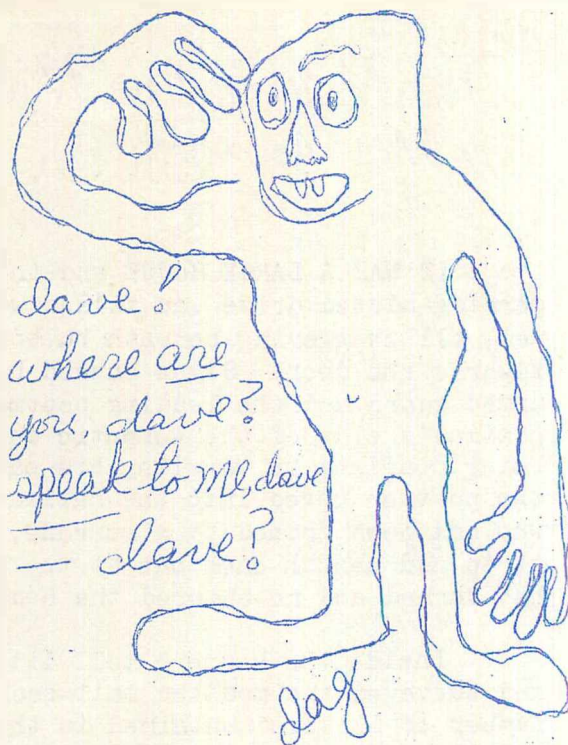 dave?
where are
you, dave?
speak to me, dave
— dave?
dag